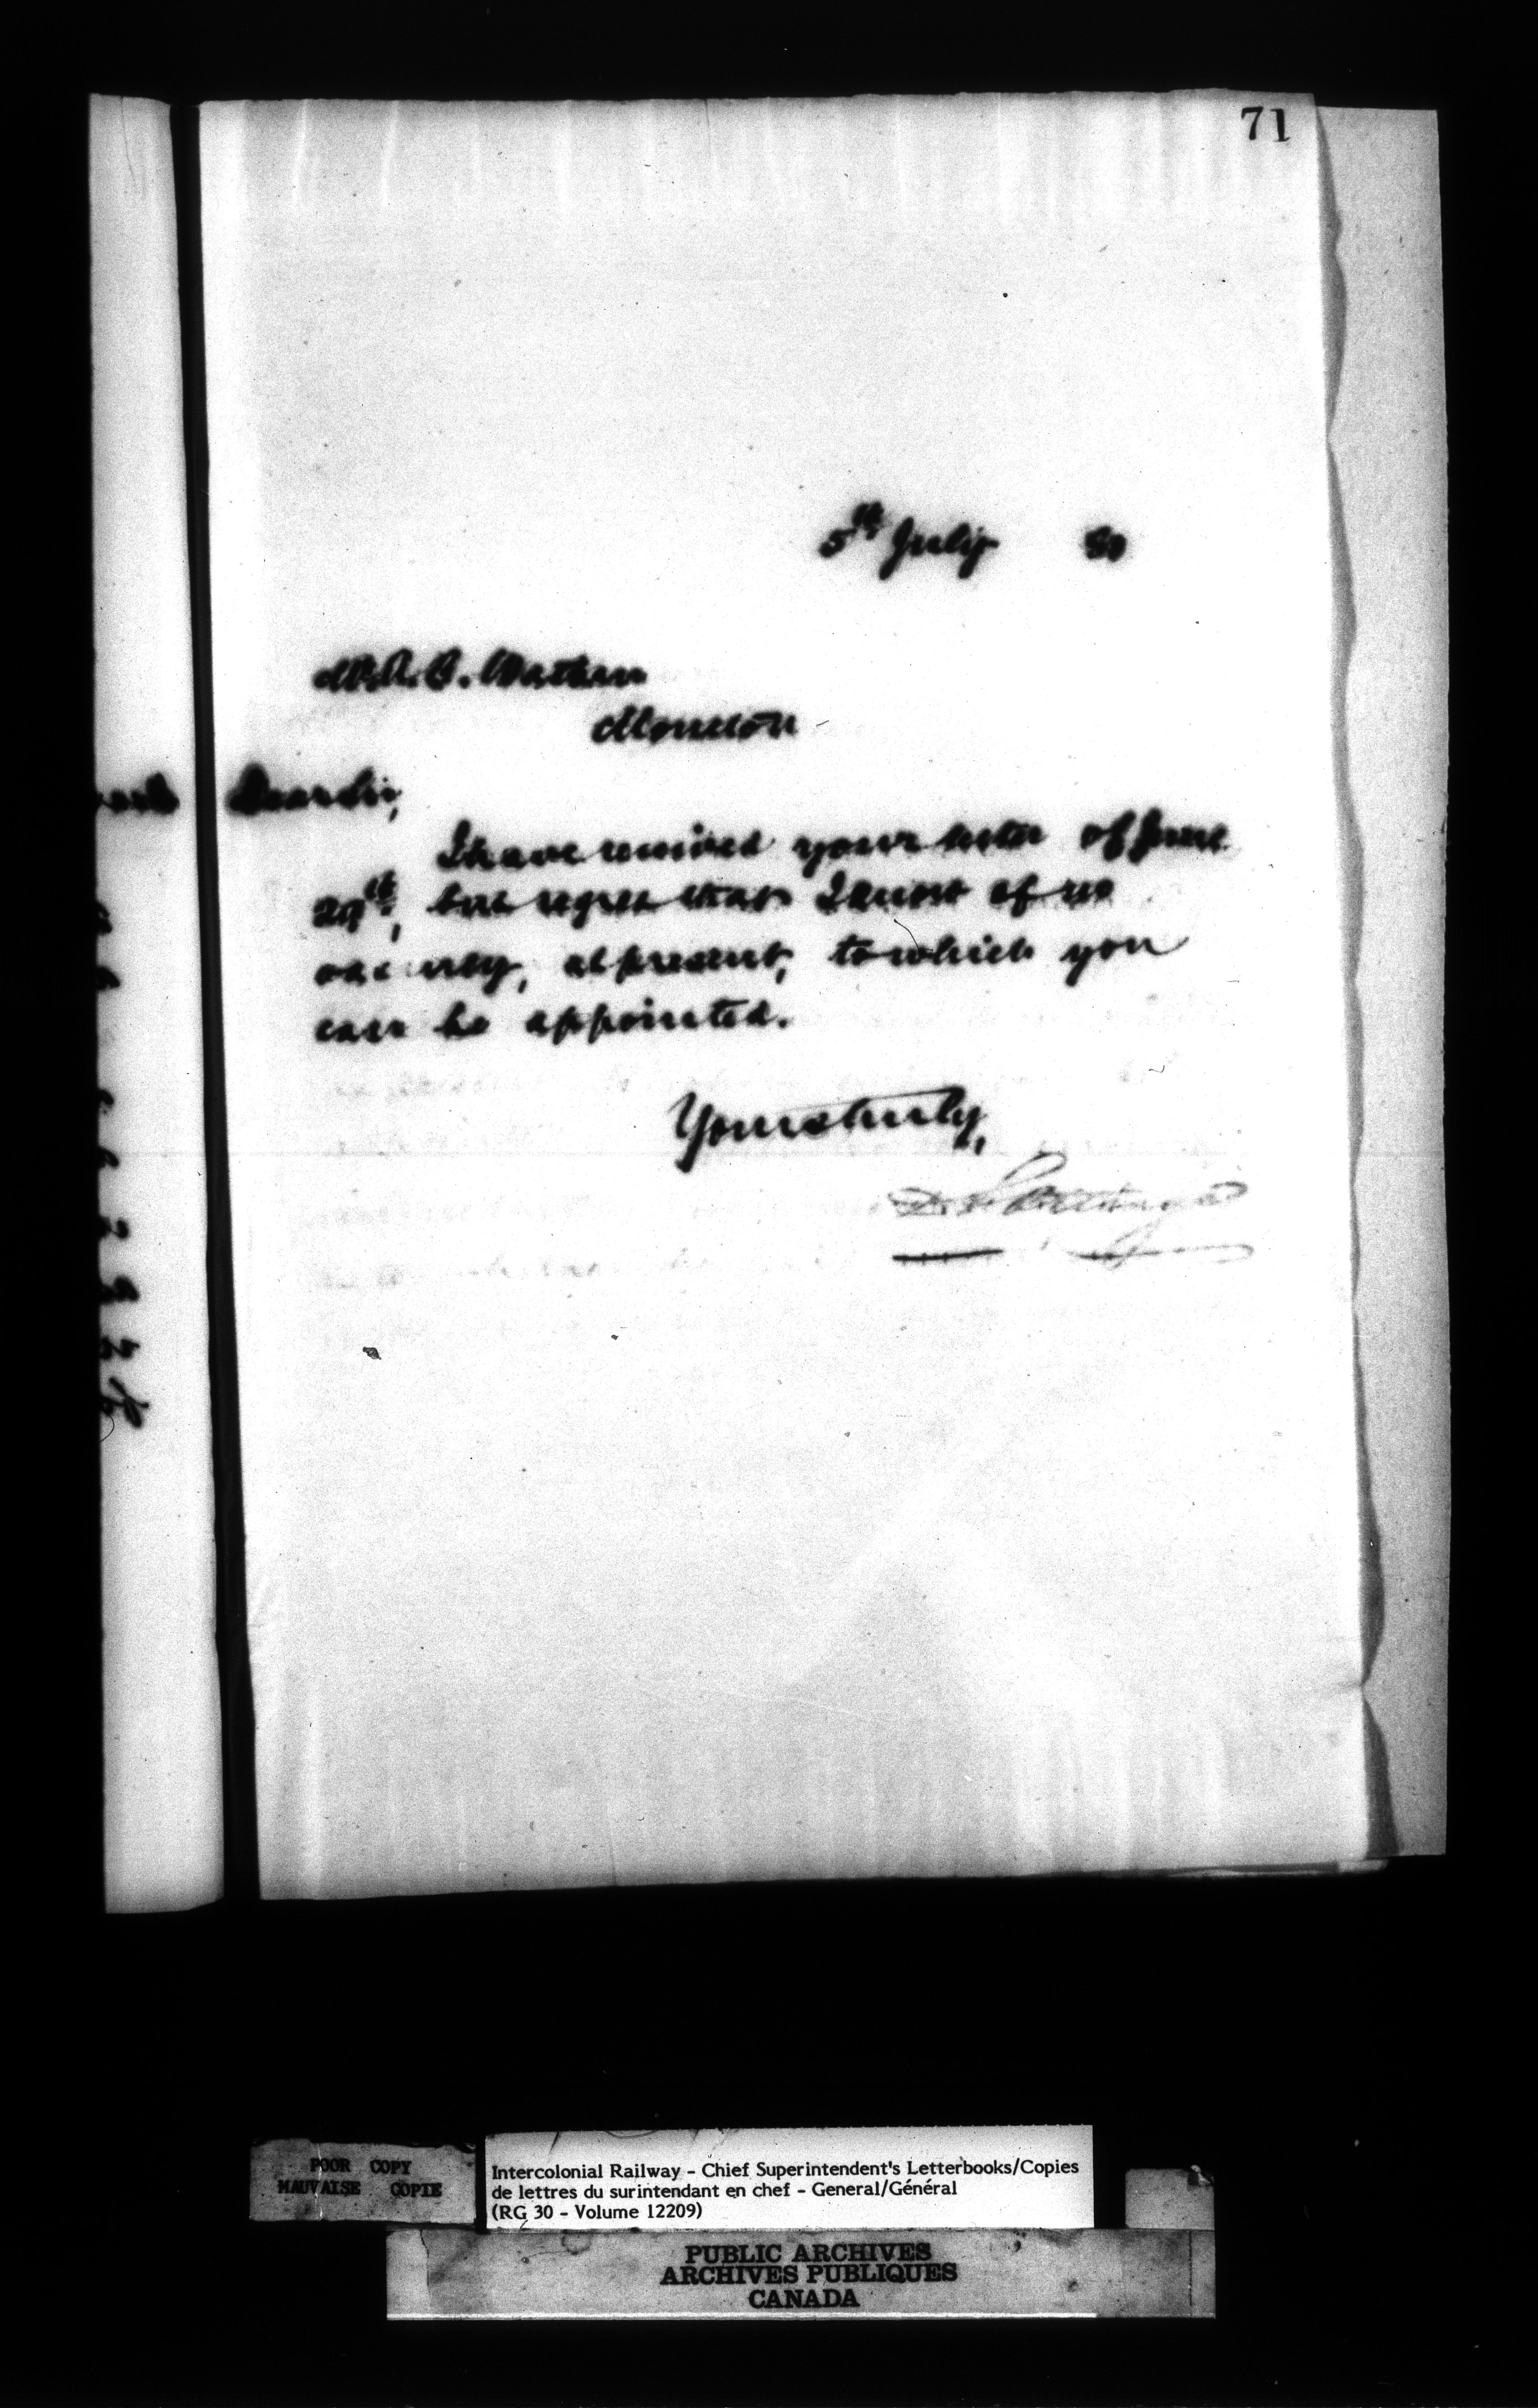 71
5th July 80
Mr. A. B. Wathen
Moncton
Dear Sir,
I have received your letter of June
29th, but regret that I know of no
vacancy, at present, to which you
can be appointed.
Yours truly,
D. Pottinger
POOR COPY
MAUVAISE COPIE
Intercolonial Railway - Chief Superintendent's Letterbooks/Copies
de lettres du surintendant en chef - General/Général
(RG 30 - Volume 12209)
PUBLIC ARCHIVES
ARCHIVES PUBLIQUES
CANADA